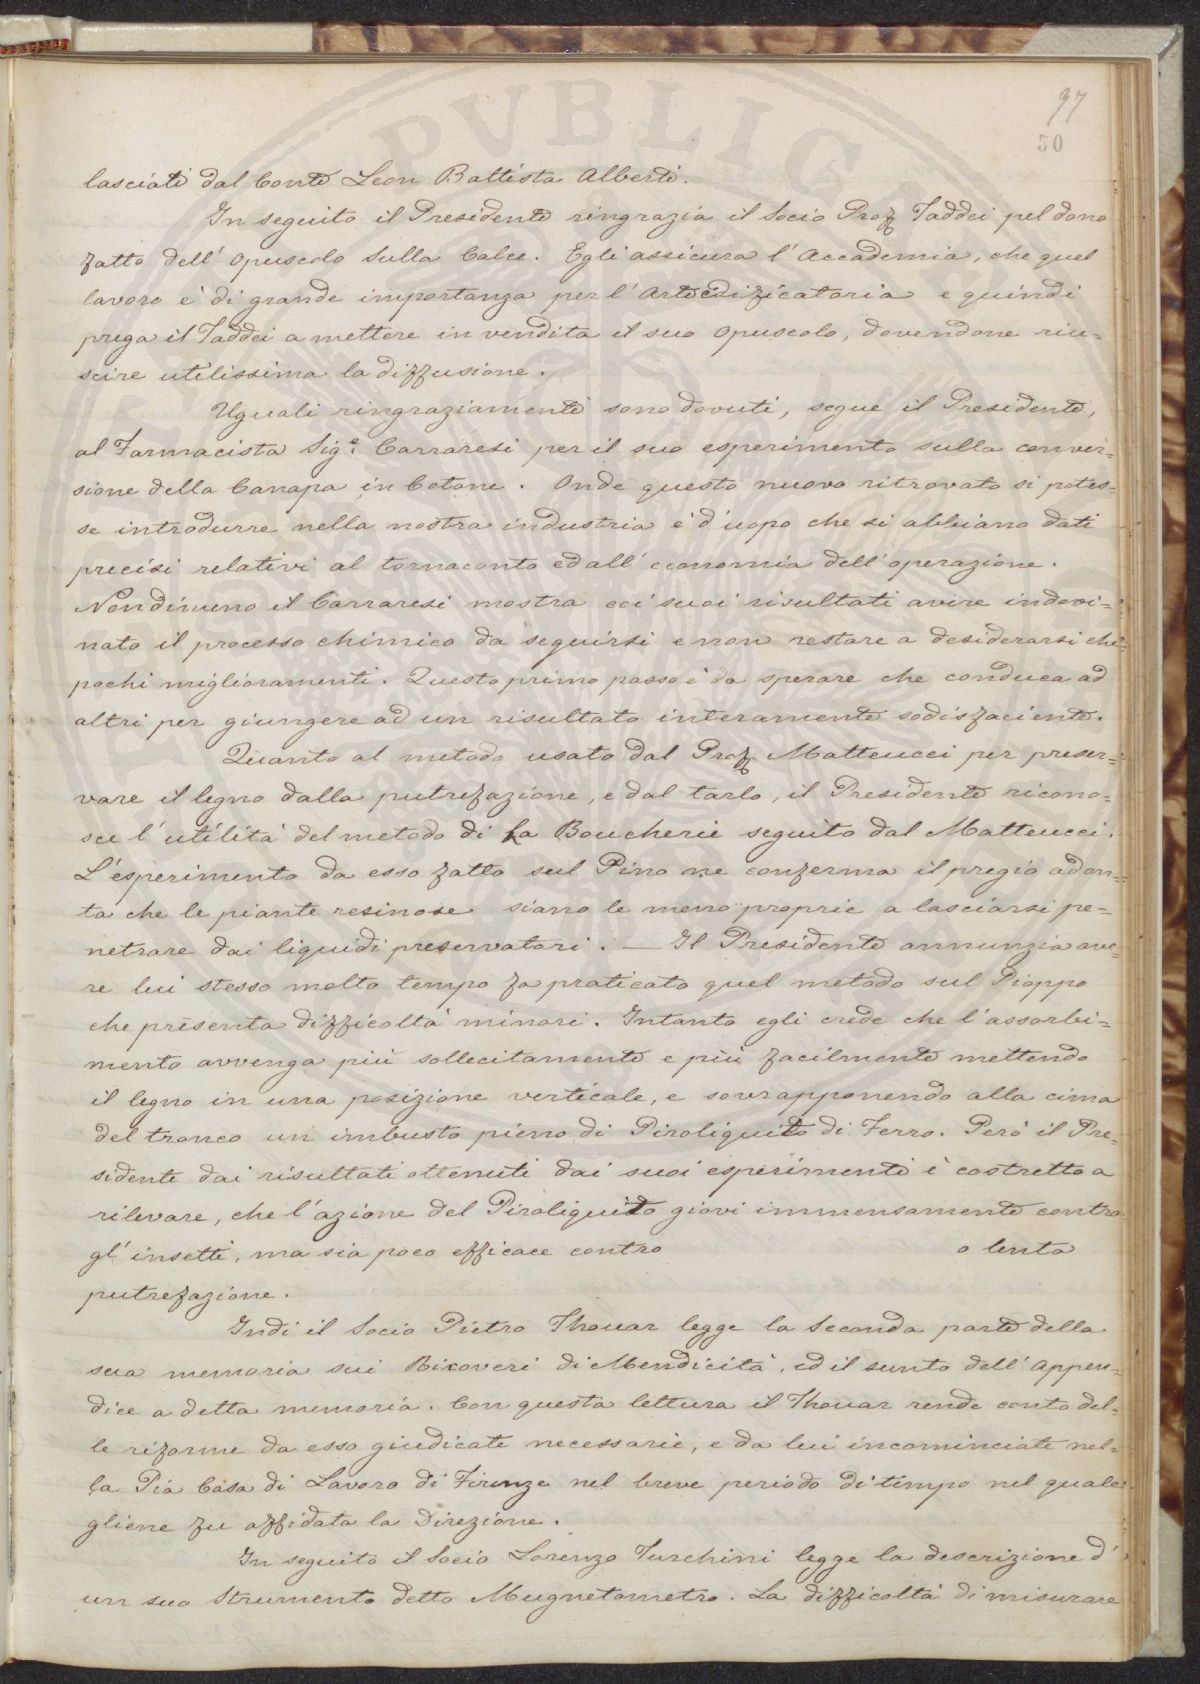 97
50
lasciati dal Conte Leon Battista Alberti.
In seguito il Presidente ringrazia il Socio Prof. Taddei pel dono
fatto dell' opuscolo sulla Calce. Egli assicura l' Accademia, che quel
lavoro è di grande importanza per l' Arte edificatoria e quindi
prega il Taddei a mettere in vendita il suo opuscolo, dovendone riu=
scire utilissima la diffusione.
Uguali ringraziamenti sono dovuti, segue il Presidente,
al Farmacista Sig.e Carraresi per il suo esperimento sulla conver=
sione della Canapa in Cotone. Onde questo nuovo ritrovato si potes=
se introdurre nella nostra industria è d'uopo che si abbiano dati
precisi relativi al tornaconto ed all' economia dell' operazione.
Nondimeno il Carraresi mostra coi suoi risultati avere indovi=
nato il processo chimico da seguirsi e non restare a desiderarsi che
pochi miglioramenti. Questo primo passo è da sperare che conduca ad
altri per giungere ad un risultato interamente sodisfaciente.
Quanto al metodo usato dal Prof. Matteucci per preser=
vare il legno dalla putrefazione, e dal tarlo, il Presidente ricono=
sce l' utilità del metodo di La Boucherie seguito dal Matteucci.
L'esperimento da esso fatto sul Pino ne conferma il pregio ad on=
ta che le piante resinose siano le meno proprie a lasciarsi pe=
netrare dai liquidi preservatori. — Il Presidente annunzia ave=
re lui stesso molto tempo fa praticato quel metodo sul Pioppo
che presenta difficoltà minori. Intanto egli crede che l'assorbi=
mento avvenga più sollecitamente e più facilmente mettendo
il legno in una posizione verticale, e sovrapponendo alla cima
del tronco un imbusto pieno di Piroliquito di Ferro. Però il Pre=
sidente dai risultati ottenuti dai suoi esperimenti è costretto a
rilevare, che l'azione del Piroliquito giovi immensamente contro
gl' insetti, ma sia poco efficace contro o lenta
putrefazione.
Indi il Socio Pietro Thouar legge la Seconda parte della
sua memoria sui Ricoveri di Mendicità, ed il sunto dell' Appen=
dice a detta memoria. Con questa lettura il Thouar rende conto del=
le riforme da esso giudicate necessarie, e da lui incominciate nel=
la Pia Casa di Lavoro di Firenze nel breve periodo di tempo nel quale
gliene fu affidata la Direzione.
In seguito il Socio Lorenzo Turchini legge la descrizione d'
un suo Strumento detto Mugnetometro. La difficoltà di misurare